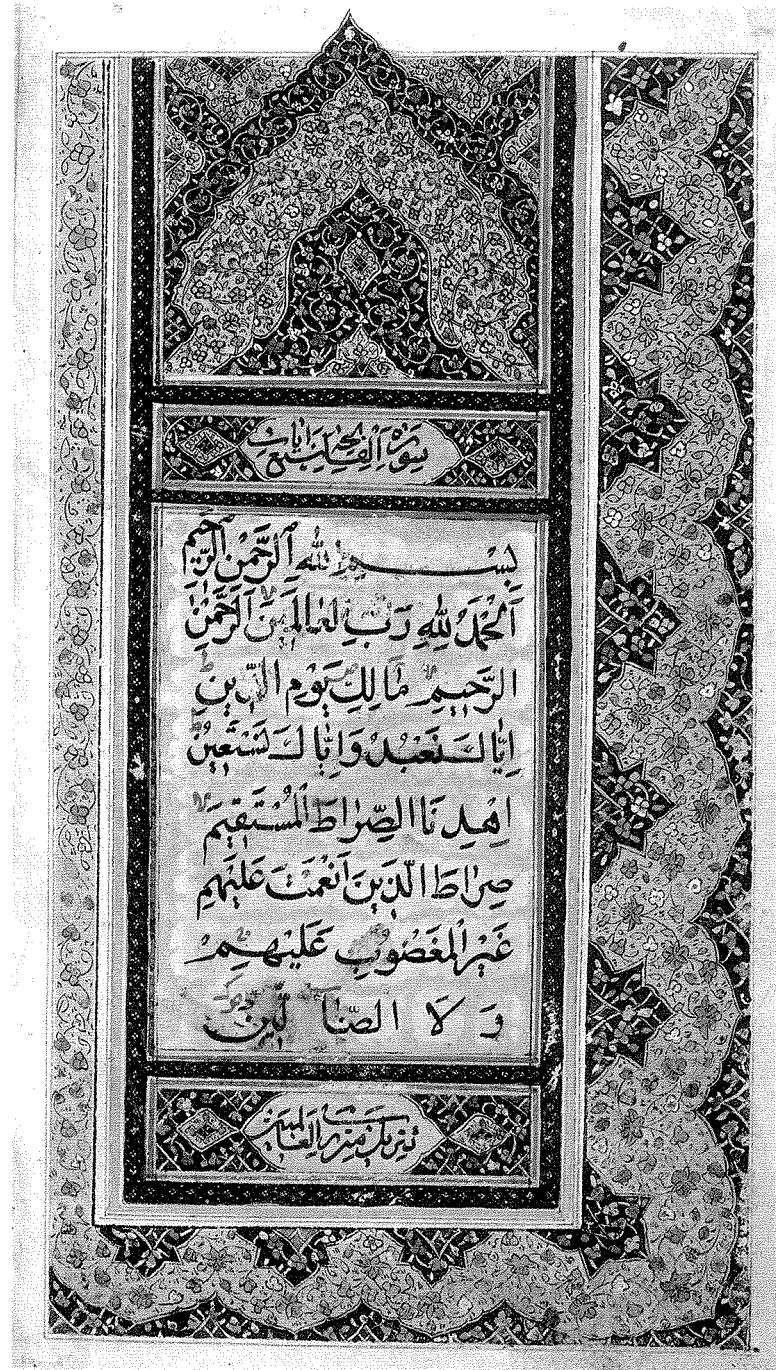 سورة الفاتحة سبع آيات
بِسْمِ اللهِ الرَّحْمٰنِ الرَّحِيمِ
اَلْحَمْدُ لِلّٰهِ رَبِّ الْعَالَمِينَ اَلرَّحْمٰنِ
الرَّحِيمِ مَالِكِ يَوْمِ الدِّينِ
اِيَّاكَ نَعْبُدُ وَاِيَّاكَ نَسْتَعِينُ
اِهْدِنَا الصِّرَاطَ الْمُسْتَقِيمَ
صِرَاطَ الَّذِينَ اَنْعَمْتَ عَلَيْهِمْ
غَيْرِ الْمَغْضُوبِ عَلَيْهِمْ
وَلَا الضَّالِّينَ
تنزيل من رب العالمين